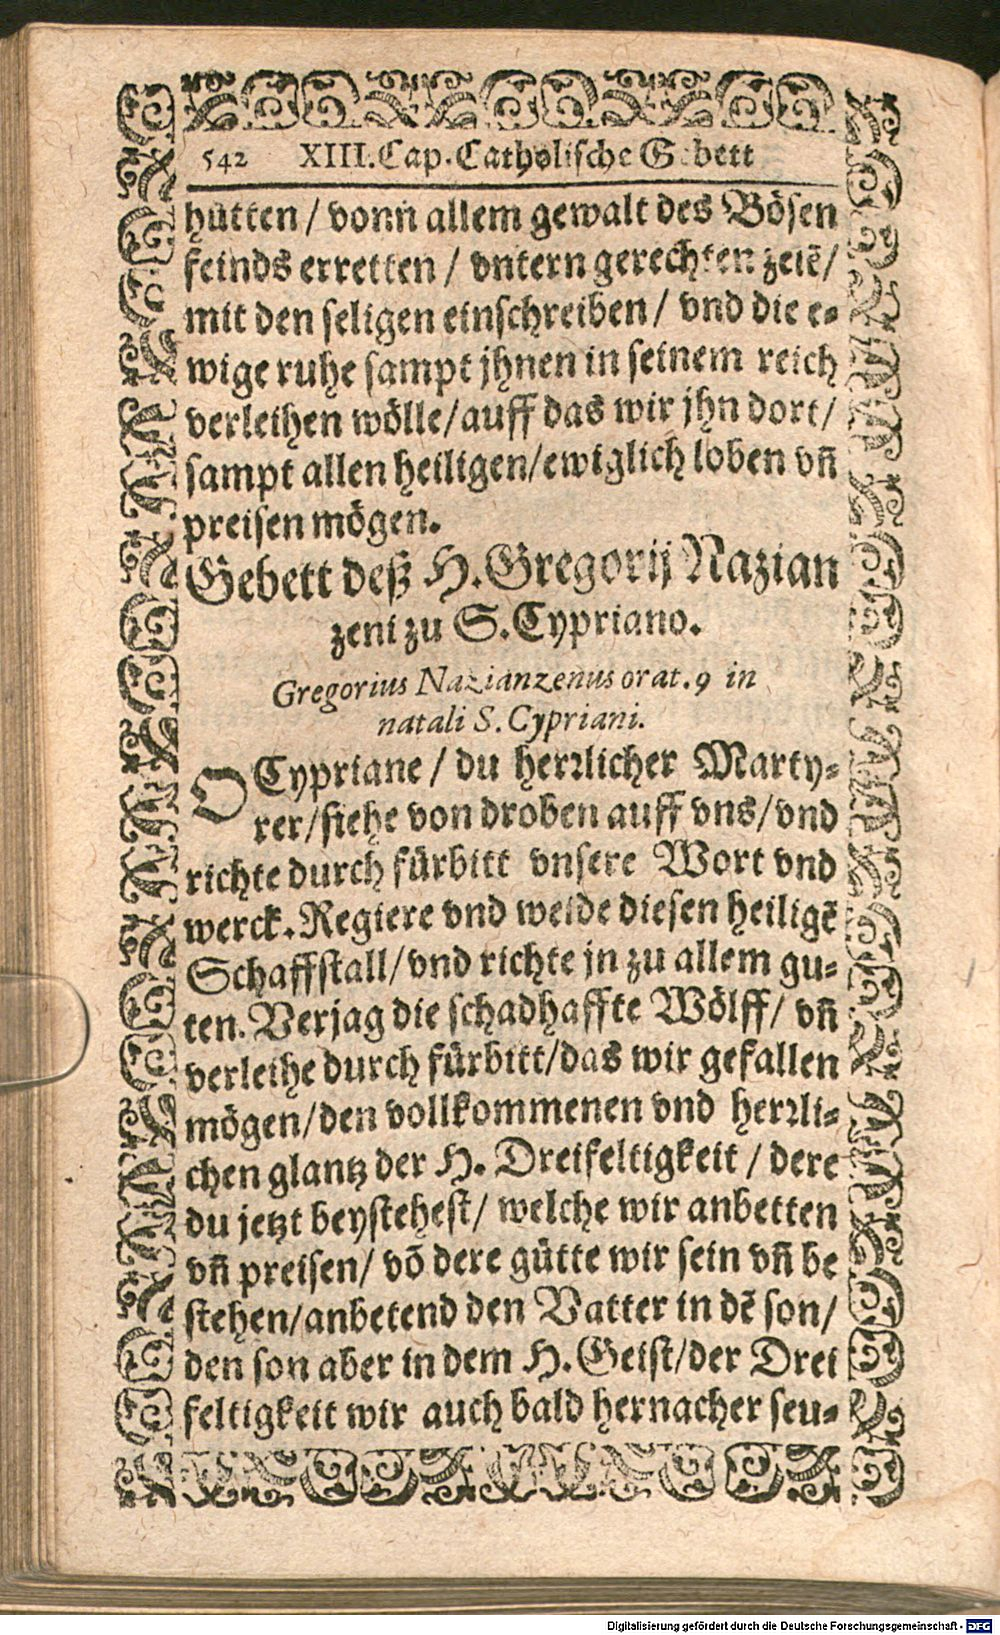 542 XIII. Cap. Catholische Gebett
hütten / vonn allem gewalt des Bösen
feinds erretten / vntern gerechten zelē /
mit den seligen einschreiben / vnd die e-
wige ruhe sampt jhnen in seinem reich
verleihen wölle / auff das wir jhn dort /
sampt allen heiligen / ewiglich loben vñ
preisen mögen.
Gebett deß H. Gregorij Nazian
zeni zu S. Cypriano.
Gregorius Nazianzenus orat. 9 in
natali S. Cypriani.
O Cypriane / du herrlicher Marty-
rer / siehe von droben auff vns / vnd
richte durch fürbitt vnsere Wort vnd
werck. Regiere vnd weide diesen heiligē
Schaffstall / vnd richte jn zu allem gu-
ten. Verjag die schadhaffte Wölff / vñ
verleihe durch fürbitt / das wir gefallen
mögen / den vollkommenen vnd herrli-
chen glantz der H. Dreifeltigkeit / dere
du jetzt beystehest / welche wir anbetten
vñ preisen / võ dere gütte wir sein vñ be
stehen / anbetend den Vatter in dē son /
den son aber in dem H. Geist / der Drei
feltigkeit wir auch bald hernacher seu-
Digitalisierung gefördert durch die Deutsche Forschungsgemeinschaft - DFG